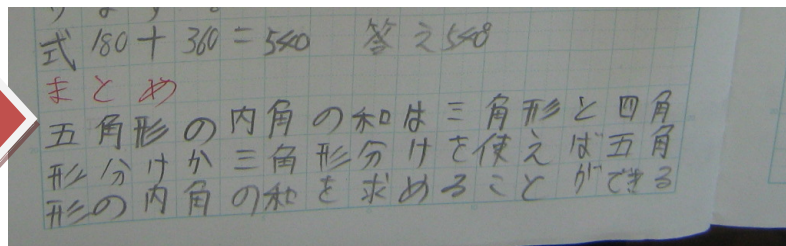 式 180+360=540 答え540
まとめ
五角形の内角の和は三角形と四角
形分けか三角形分けを使えば五角
形の内角の和を求めることができる